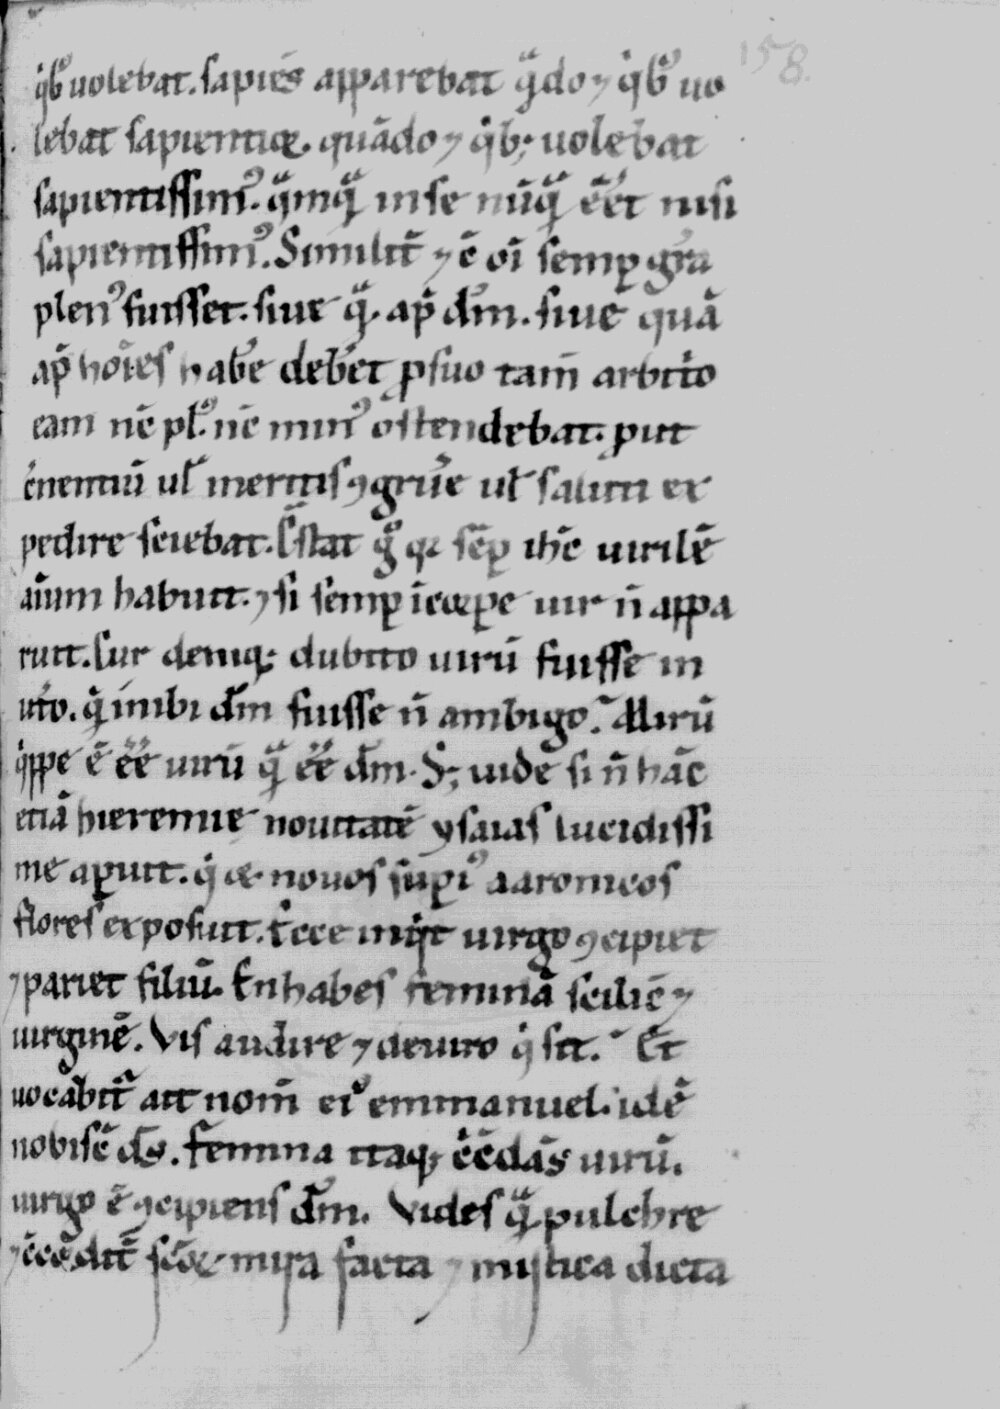 158.
q̇bꝰ uolebat. sapiēs apparebat qͣdo ⁊ q̇bꝰ uo
lebat sapientior. quādo ⁊ q̇b; uolebat
sapientissimꝰ. qͣmqͣ in se nūqͣ ēēt nisi
sapientissimꝰ. Similit̄ ⁊ cū oī semꝑ gr̄a
plenꝰ fuisset. siue qͣ. ap̄ dm̄. siue quā
ap̄ hoīes habe᷑ deb᷑et ꝓ suo tam̄ arbit̍o
eam nc̄ plꝰ. nc̄ minꝰ ostendebat. ꝓut
c᷑nentiū ul̄ meritis ꝯgrue᷑ ul̄ saluti ex
pedire sciebat. Cͦstat gͦ qꝛ sēꝑ ihc̄ uirilē
aīum habuit. ⁊ si semꝑ ī corꝑe uir n̄ appa
ruit. Cur deniq; dubito uirū fuisse in
ut᷑o. q̄ inibi dm̄ fuisse n̄ ambigo? Mirū
q̍ppe ē ēē uirū qͣ ēē dm̄. S; uide si n̄ hāc
etiā hieremie nouitatē ysaias lucidissi
me aꝑuit. q̇ ⁊ nouos suꝑiꝰ aaronicos
flores exposuit. Ecce inq̍t uirgo ꝯcipiet
⁊ pariet filiū. En habes feminā scilic̄ ⁊
uirginē. Vis audire ⁊ de uiro q̇s sit? Et
uocabit᷑ ait nom̄ eiꝰ emmanuel. id ē
nobiscū dš. Femina itaq; c̍cūdās uirū.
uirgo ē ꝯcipiens dm̄. Vides qͣ pulchre
⁊ ꝯcordit̄ scōꝝ mira facta ⁊ mystica dicta